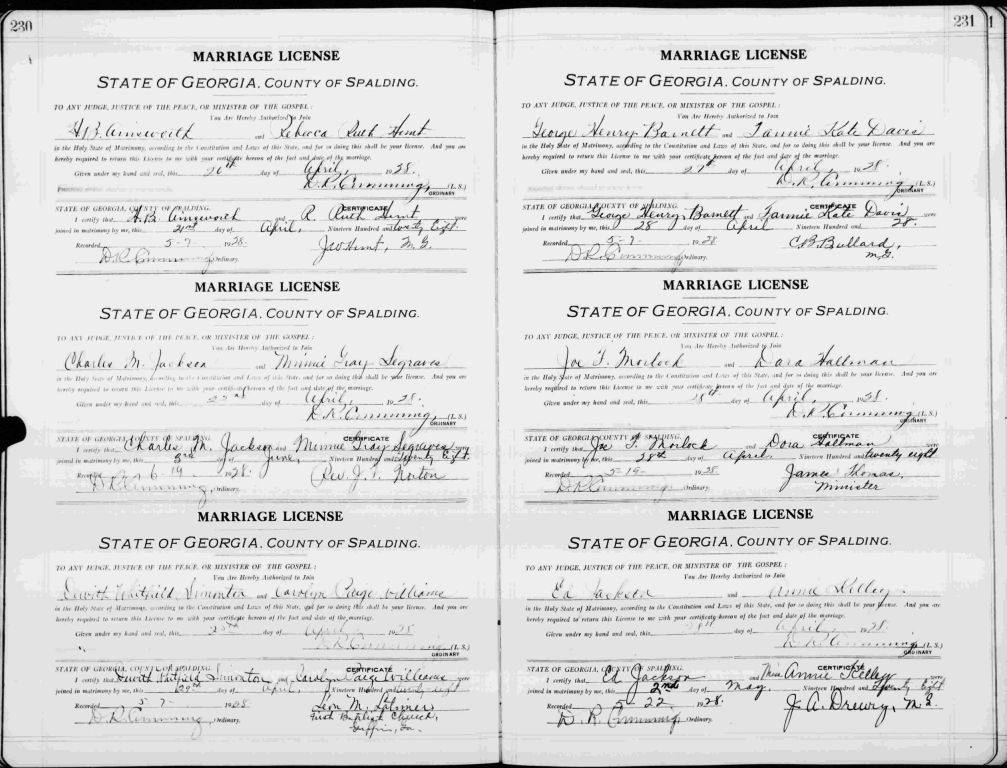 230
MARRIAGE LICENSE
STATE OF GEORGIA, COUNTY OF SPALDING.
TO ANY JUDGE, JUSTICE OF THE PEACE, OR MINISTER OF THE GOSPEL:
You Are Hereby Authorized to Join
H.B. Ainsworth and Rebecca Ruth Hunt
in the Holy State of Matrimony, according to the Constitution and Laws of this State, and for so doing this shall be your license. And you are
hereby required to return this License to me with your certificate hereon of the fact and date of the marriage.
Given under my hand and seal, this 20th day of April, 1928.
D.R. Cumming, (L.S.)
ORDINARY
STATE OF GEORGIA, COUNTY OF SPALDING. CERTIFICATE
I certify that H.B. Ainsworth and R. Ruth Hunt were
joined in matrimony by me, this 21st day of April, Nineteen Hundred and twenty Eight.
Recorded 5-7- 1928. Jao Hunt, M.G.
D.R. Cumming, Ordinary.
MARRIAGE LICENSE
STATE OF GEORGIA, COUNTY OF SPALDING.
TO ANY JUDGE, JUSTICE OF THE PEACE, OR MINISTER OF THE GOSPEL:
You Are Hereby Authorized to Join
Charles M. Jackson and Minnie Gray Segraves
in the Holy State of Matrimony, according to the Constitution and Laws of this State, and for so doing this shall be your license. And you are
hereby required to return this License to me with your certificate hereon of the fact and date of the marriage.
Given under my hand and seal, this day of April, 1928.
D.R. Cumming, (L.S.)
ORDINARY
STATE OF GEORGIA, COUNTY OF SPALDING. CERTIFICATE
I certify that Charles M. Jackson and Minnie Gray Segraves were
joined in matrimony by me, this 3rd day of June, Nineteen Hundred and Twenty Eight.
Recorded 6-19 1928. Rev. J. T. Norton
D.R. Cumming, Ordinary.
MARRIAGE LICENSE
STATE OF GEORGIA, COUNTY OF SPALDING.
TO ANY JUDGE, JUSTICE OF THE PEACE, OR MINISTER OF THE GOSPEL:
You Are Hereby Authorized to Join
Dewith Whitfield Simonton and Carolyn Paige Williams
in the Holy State of Matrimony, according to the Constitution and Laws of this State, and for so doing this shall be your license. And you are
hereby required to return this License to me with your certificate hereon of the fact and date of the marriage.
Given under my hand and seal, this day of April 1928
D.R. Cumming (L.S.)
ORDINARY
STATE OF GEORGIA, COUNTY OF SPALDING. CERTIFICATE
I certify that Dewith Whitfield Simonton and Carolyn Paige Williams were
joined in matrimony by me, this day of April, Nineteen Hundred and twenty eight
Recorded 5-7- 1928. Leon M. Latimer
D.R. Cumming, Ordinary. First Baptist Church,
Griffin, Ga.
231
MARRIAGE LICENSE
STATE OF GEORGIA, COUNTY OF SPALDING.
TO ANY JUDGE, JUSTICE OF THE PEACE, OR MINISTER OF THE GOSPEL:
You Are Hereby Authorized to Join
George Henry Barnett and Fannie Kate Davis
in the Holy State of Matrimony, according to the Constitution and Laws of this State, and for so doing this shall be your license. And you are
hereby required to return this License to me with your certificate hereon of the fact and date of the marriage.
Given under my hand and seal, this 27th day of April, 1928.
D.R. Cumming, (L.S.)
ORDINARY
STATE OF GEORGIA, COUNTY OF SPALDING. CERTIFICATE
I certify that George Henry Barnett and Fannie Kate Davis were
joined in matrimony by me, this 28 day of April Nineteen Hundred and 28.
Recorded 5-7- 1928 C B Bullard,
D.R. Cumming, Ordinary. M.G.
MARRIAGE LICENSE
STATE OF GEORGIA, COUNTY OF SPALDING.
TO ANY JUDGE, JUSTICE OF THE PEACE, OR MINISTER OF THE GOSPEL:
You Are Hereby Authorized to Join
Joe F. Morlock and Dora Hallman
in the Holy State of Matrimony, according to the Constitution and Laws of this State, and for so doing this shall be your license. And you are
hereby required to return this License to me with your certificate hereon of the fact and date of the marriage.
Given under my hand and seal, this 28th day of April, 1928.
D.R. Cumming, (L.S.)
ORDINARY
STATE OF GEORGIA, COUNTY OF SPALDING. CERTIFICATE
I certify that Joe F. Morlock and Dora Hallman were
joined in matrimony by me, this 28th day of April Nineteen Hundred and twenty eight
Recorded 5-19- 1928 James Thomas,
D.R. Cumming, Ordinary. Minister
MARRIAGE LICENSE
STATE OF GEORGIA, COUNTY OF SPALDING.
TO ANY JUDGE, JUSTICE OF THE PEACE, OR MINISTER OF THE GOSPEL:
You Are Hereby Authorized to Join
Ed Jackson and Annie Kelley
in the Holy State of Matrimony, according to the Constitution and Laws of this State, and for so doing this shall be your license. And you are
hereby required to return this License to me with your certificate hereon of the fact and date of the marriage.
Given under my hand and seal, this 28th day of April, 1928.
D.R. Cumming (L.S.)
ORDINARY
STATE OF GEORGIA, COUNTY OF SPALDING. CERTIFICATE
I certify that Ed Jackson and Miss Annie Kelley were
joined in matrimony by me, this 2nd day of May, Nineteen Hundred and Twenty Eight
Recorded 5-22 1928. J. A. Drewry, M.G.
D.R. Cumming, Ordinary.